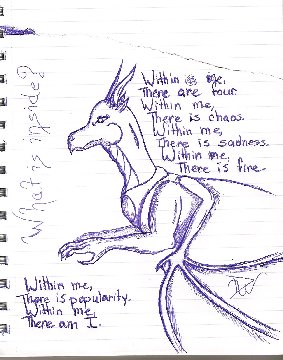 What is inside?
Within me,
There are four
Within me,
There is chaos.
Within me,
There is sadness.
Within me,
There is fire.
Within me,
There is popularity.
Within me
There am I.